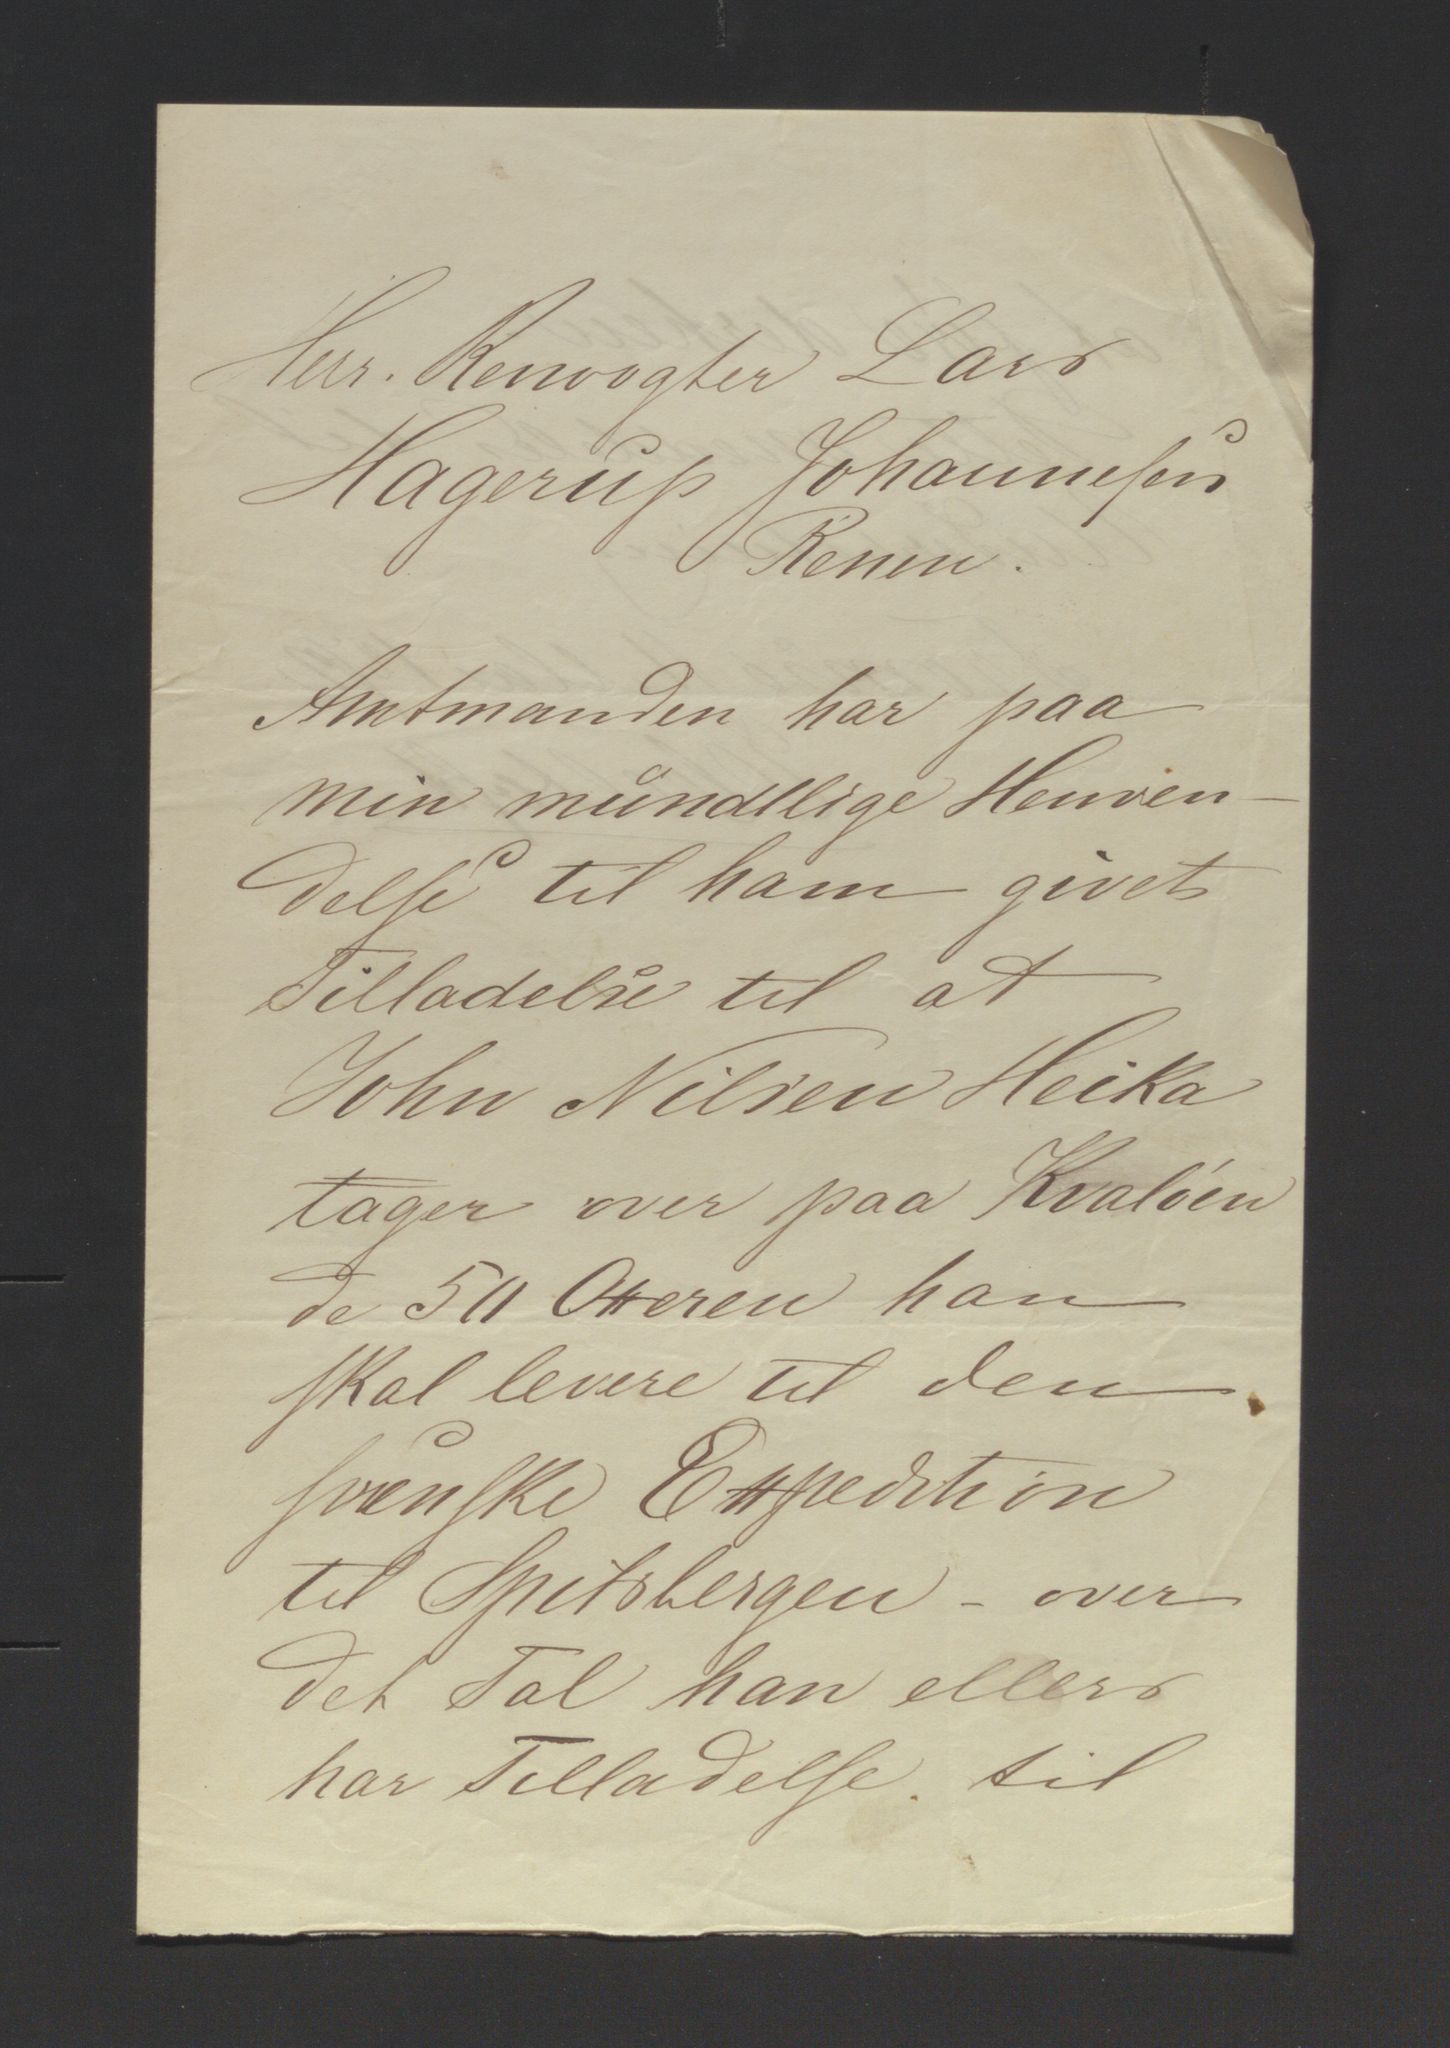 Herr. Renvogter Lars
Hagerup Johannesen
Renen.
Amtmanden har paa
min mündtlige Henven-
delse til ham givet
Tilladelse til at
John Nilsen Heika
tager over paa Kvaløen
de 50 Oxeren han
skal levere til den
svenske Expedition
til Spitsbergen - over
det Tal han ellers
har Tilladelse til